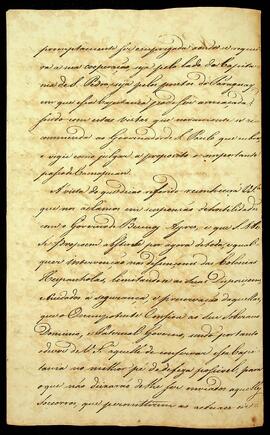 promptamente for empregada aonde o requei-
ra a sua cooperação seja pelo lado da Capita-
nia de S. Pedro, seja pelos pontos do Paraguay,
em que essa Capitania pode ser ameaçada;
sendo com estas vistas que novamente se re-
commenda ao Governador de S. Paulo que
e vigie como julgar a proposito o importante
passo de Camapuan.
A vista do que deixo referido reconhecerá V. Ex.ª
que no aclamos em suspensão de hostilidades
com o Governo de Buenos Ayres, e que S. A. R.
o P. R. N. S. por agora de toda e qual-
quer intervenção nas dissensoens das Colonias
Hespanholas, limitando as suas disposiçoens
e cuidados á segurança e preservação daquellas,
que o Omnipotente Confiou ao Seu Soberano
Dominio, e Paternal Governo, sendo por tanto
o dever de V. Ex.ª aquelle de conservar essa Capi-
tania no melhor pé de defeza possivel, para
o que não deixarão de lhe ser enviados aquelles
soccorros, que permittirem as actuaes cir-